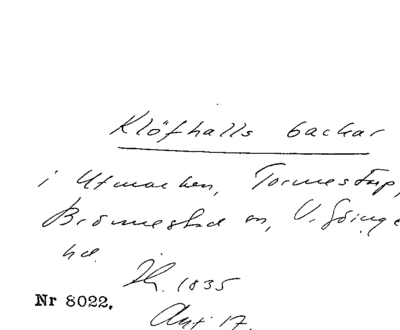 Klöfhalls backar
i Utmarken, Tormestorp,
Brönnestad sn, V. Göinge
hd.
1835
Nr 8022.
Ant. 17.